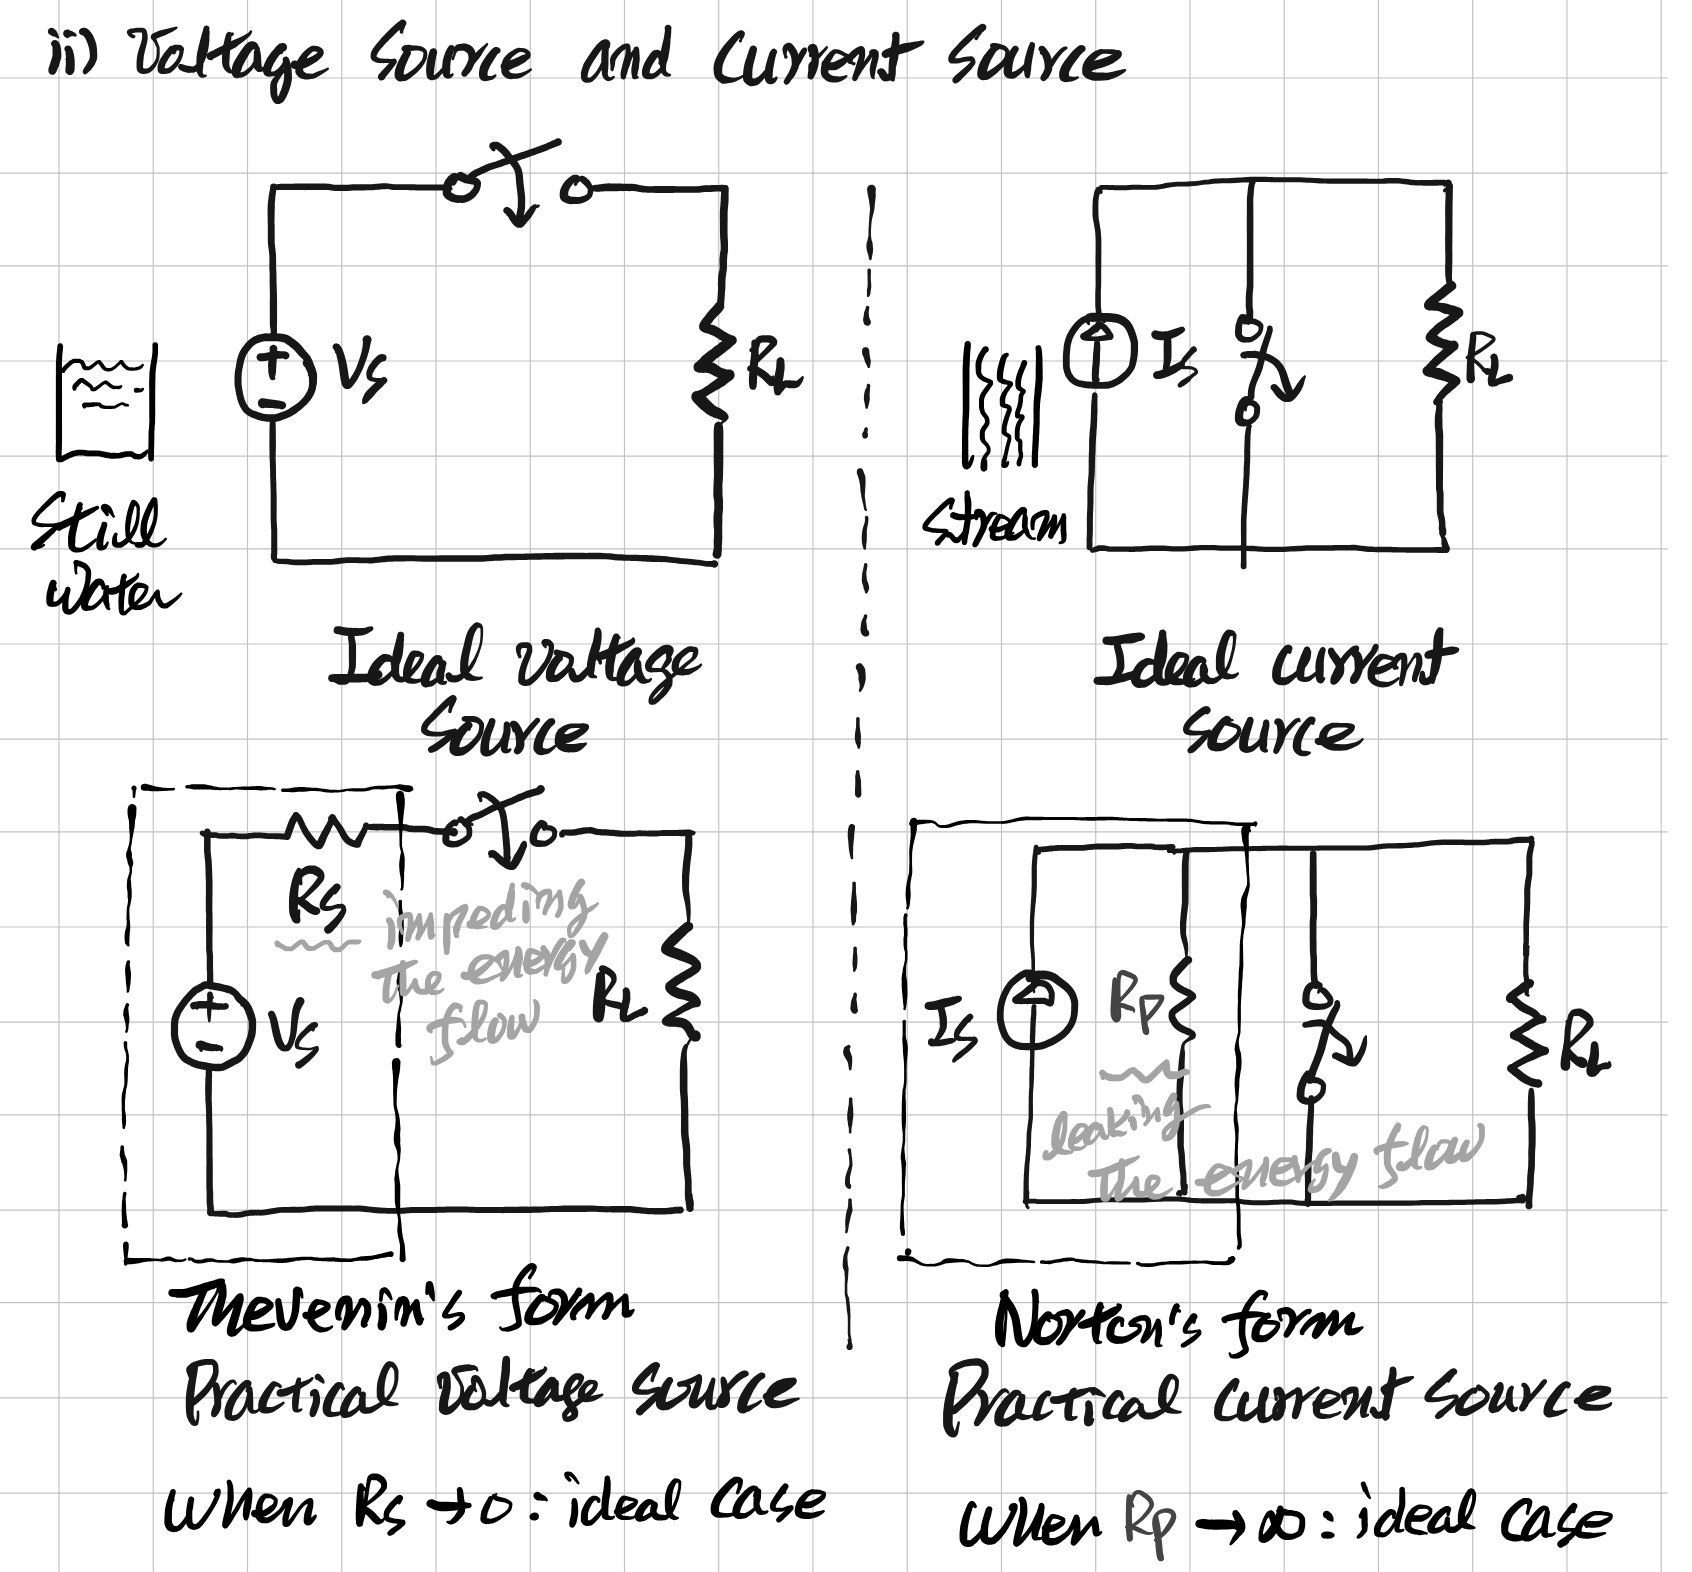 ii) Voltage Source and Current Source
Vs
RL
Still
water
Ideal Voltage
Source
Is
RL
stream
Ideal current
source
Rs
impeding
the energy
flow
Vs
RL
Thevenin's form
Practical Voltage source
when Rs → 0 : ideal case
Is
Rp
leaking
the energy flow
RL
Norton's form
Practical current source
when Rp → ∞ : ideal case